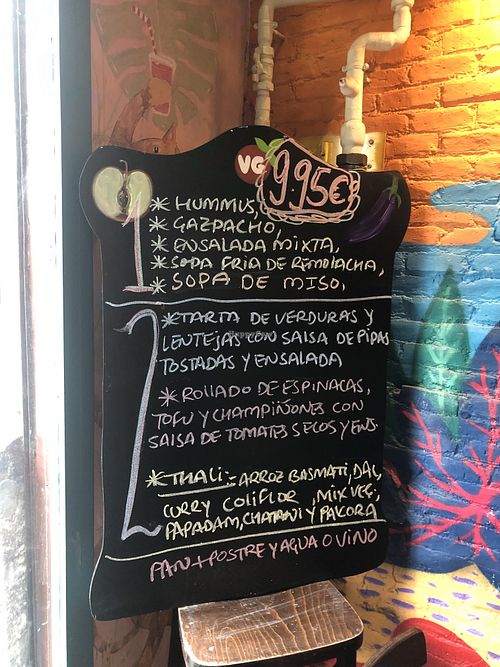 VG 9.95€
1
* HUMMUS,
* GAZPACHO,
* ENSALADA MIXTA,
* SOPA FRIA DE REMOLACHA,
* SOPA DE MISO,
2
* TARTA DE VERDURAS Y
LENTEJAS CON SALSA DE PIPAS
TOSTADAS Y ENSALADA
* ROLLADO DE ESPINACAS,
TOFU Y CHAMPIÑONES CON
SALSA DE TOMATES SECOS Y ENS.
* THALI:- ARROZ BASMATI, DAL,
CURRY COLIFLOR, MIX VEG,
PAPADAM, CHATANI Y PAKORA
PAN + POSTRE Y AGUA O VINO